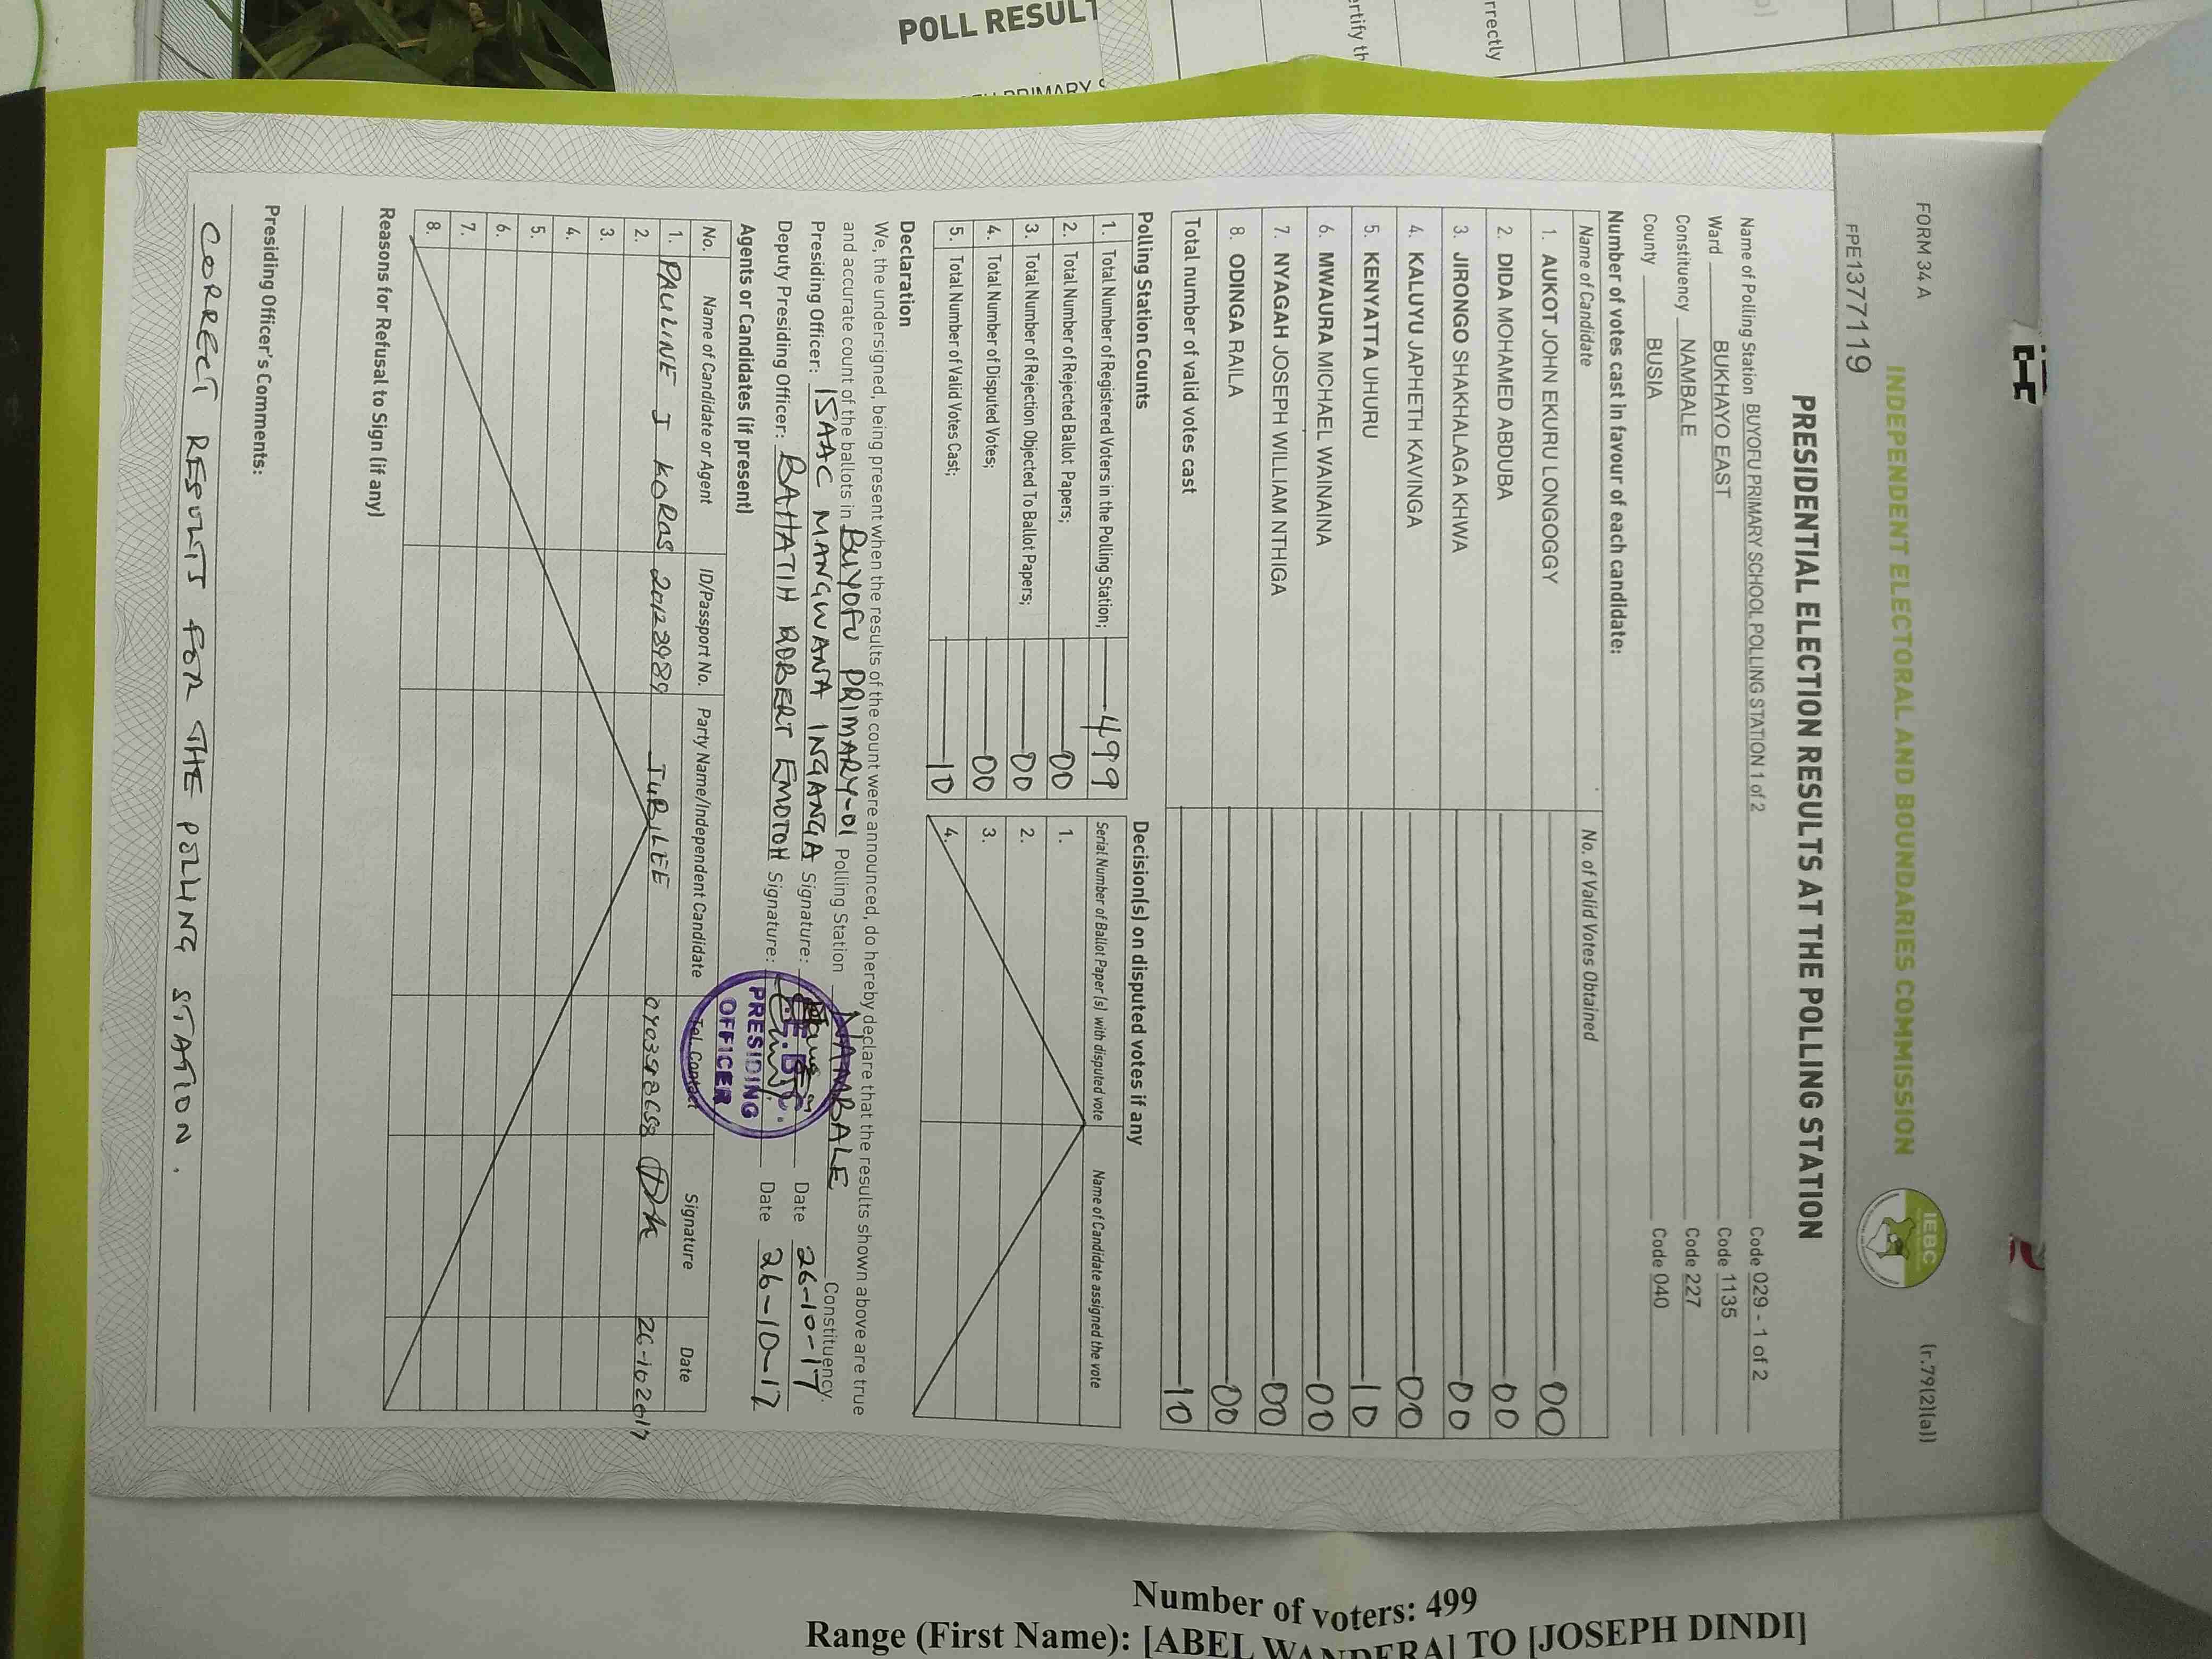 FORM 34 A
(r.79(2)(a))
INDEPENDENT ELECTORAL AND BOUNDARIES COMMISSION
IEBC
FPE1377119
PRESIDENTIAL ELECTION RESULTS AT THE POLLING STATION
Name of Polling Station BUYOFU PRIMARY SCHOOL POLLING STATION 1 of 2 Code 029 - 1 of 2
Ward BUKHAYO EAST Code 1135
Constituency NAMBALE Code 227
County BUSIA Code 040
Number of votes cast in favour of each candidate:
Name of Candidate No. of Valid Votes Obtained
1. AUKOT JOHN EKURU LONGOGGY 00
2. DIDA MOHAMED ABDUBA 00
3. JIRONGO SHAKHALAGA KHWA 00
4. KALUYU JAPHETH KAVINGA 00
5. KENYATTA UHURU 10
6. MWAURA MICHAEL WAINAINA 00
7. NYAGAH JOSEPH WILLIAM NTHIGA 00
8. ODINGA RAILA 00
Total number of valid votes cast 10
Polling Station Counts
1. Total Number of Registered Voters in the Polling Station; 499
2. Total Number of Rejected Ballot Papers; 00
3. Total Number of Rejection Objected To Ballot Papers; 00
4. Total Number of Disputed Votes; 00
5. Total Number of Valid Votes Cast; 10
Decision(s) on disputed votes if any
Serial Number of Ballot Paper (s) with disputed vote Name of Candidate assigned the vote
1.
2.
3.
4.
Declaration
We, the undersigned, being present when the results of the count were announced, do hereby declare that the results shown above are true
and accurate count of the ballots in BUYOFU PRIMARY-01 Polling Station NAMBALE Constituency.
Presiding Officer: ISAAC MANGWANA INGANGA Signature: Date 26-10-17
Deputy Presiding Officer: ROBERT Signature: Date 26-10-17
PRESIDING
OFFICER
Agents or Candidates (if present)
No. Name of Candidate or Agent ID/Passport No. Party Name/Independent Candidate Tel. Contact Signature Date
1. PAULINE I KORAS JUBILEE 26-10-2017
2.
3.
4.
5.
6.
7.
8.
Reasons for Refusal to Sign (if any)
Presiding Officer's Comments:
CORRECT RESULTS FOR THE POLLING STATION.
POLL RESULT
PRIMARY
ertify th
rrectly
Number of voters: 499
Range (First Name): [ABEL WANDERA] TO [JOSEPH DINDI]